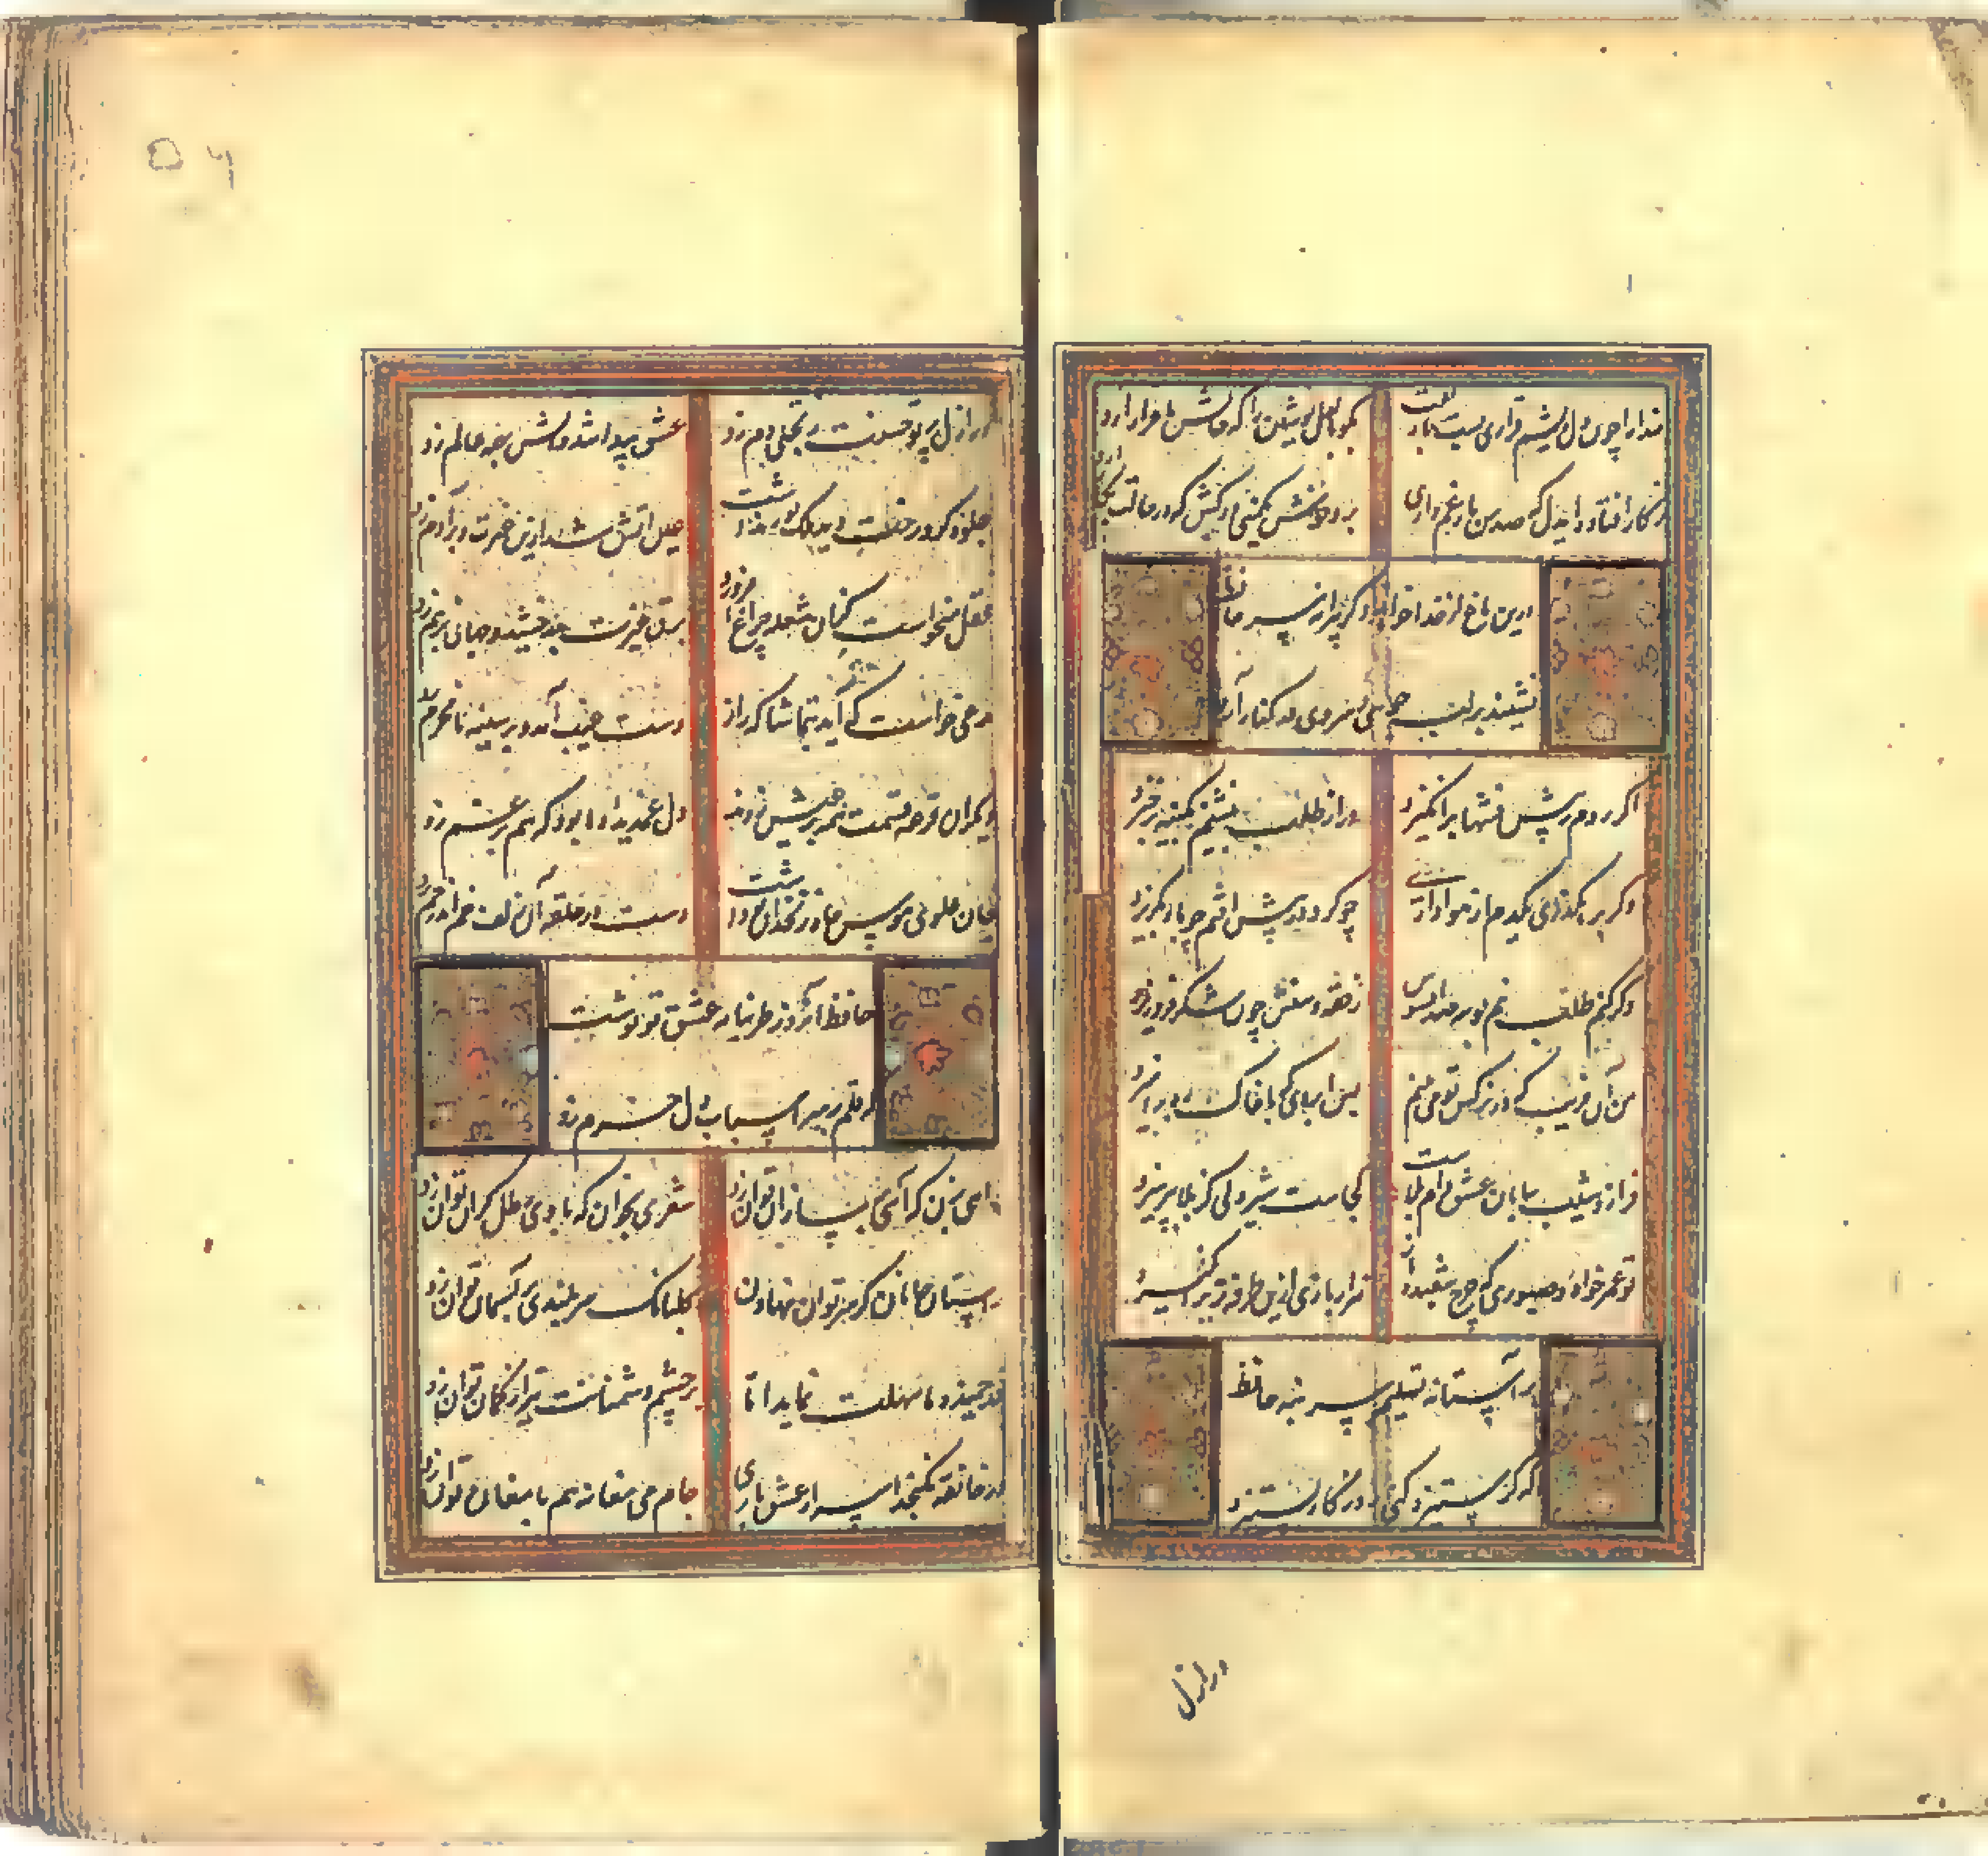 خدا را چون دل ریشم قراری بست با زلفت
بگو لعل نوشین را که جانش با قرار آرد
ز کار افتاده ایدل که صد من بار غم داری
برو
درین باغ از خدا خواهد دگر پیرانه سر حافظ
نشیند بر لب جوئی و سروی در کنار آرد
اگر روم ز پیش فتنها برانگیزد
ور از طلب بنشینم بکینه برخیزد
وگر برهگذری یکدم از هواداری
چو گرد در پیش افتم چو باد بگریزد
وگر کنم طلب نیم بوسه صد افسوس
ز حقه دهنش چون شکر فرو ریزد
من آن فریب که در نرگس تو می بینم
بس آب روی که با خاک ره برآمیزد
فراز و شیب بیابان عشق دام بلاست
کجاست شیردلی کز بلا نپرهیزد
تو عمر خواه و صبوری که چرخ شعبده باز
هزار بازی ازین طرفه تر برانگیزد
بر آستانه تسلیم سر بنه حافظ
که گر ستیزه کنی روزگار بستیزد
در ازل
در ازل پرتو حسنت ز تجلی دم زد
عشق پیدا شد و آتش بهمه عالم زد
جلوه کرد رخت دید ملک عشق نداشت
عین آتش شد ازین غیرت و بر آدم زد
عقل میخواست کزان شعله چراغ افروزد
برق غیرت بدرخشید و جهان برهم زد
مدعی خواست که آید بتماشاگه راز
دست غیب آمد و بر سینه نامحرم زد
دیگران قرعه قسمت همه بر عیش زدند
دل غمدیده ما بود که هم بر غم زد
جان علوی هوس چاه زنخدان تو داشت
دست در حلقه آن زلف خم اندر خم زد
حافظ آنروز طربنامه عشق تو نوشت
که قلم بر سر اسباب دل خرم زد
راهی بزن که آهی بر ساز آن توان زد
شعری بخوان که با وی رطل گران توان زد
بر آستان جانان گر سر توان نهادن
گلبانگ سربلندی بر آسمان توان زد
قد خمیده ما سهلت نماید اما
بر چشم دشمنانت تیر از کمان توان زد
در خانقه نگنجد اسرار عشق بازی
جام می مغانه هم با مغان توان زد